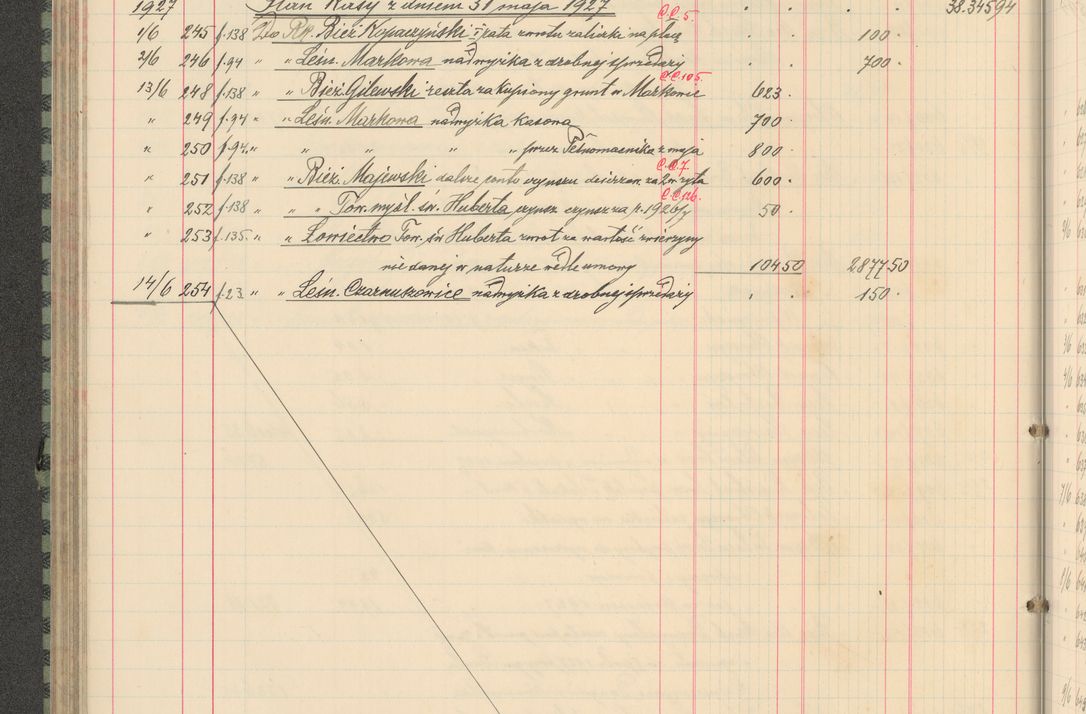 1927 Stan Kasy z dniem 31 maja 1927 38.34594
C.C.5.
1/6 245 f.138 Do Rp. Bież. Kopaczyński I rata zwrotu zaliczki na płacę 100.
2/6 246 f.94 " " Leśn. Markowa nadwyżka z drobnej sprzedaży 700.
C.C.105.
13/6 248 f.138 " " Bież. Gilewski reszta za kupiony grunt w Markowie 623.
" 249 f.94 " " Leśn. Markowa nadwyżka kasowa 700.
" 250 f.94. " " " " " przez Pełnomocnika z maja 800.
C.C.7.
" 251 f.138 " " Bież. Majewski dalsze conto czynszu dzierżaw. za 600.
C.C.126.
" 252 f.138 " " " Tow. myśl. św. Huberta czynsz za r. 1926/7 50.
" 253 f.135. " " Łowiectwo Tow. św. Huberta zwrot za wartość zwierzyny
nie danej w naturze wedle umowy 10450 287750
14/6 254 f.23 " " Leśn. Czarnuszowice nadwyżka z drobnej sprzedaży 150.